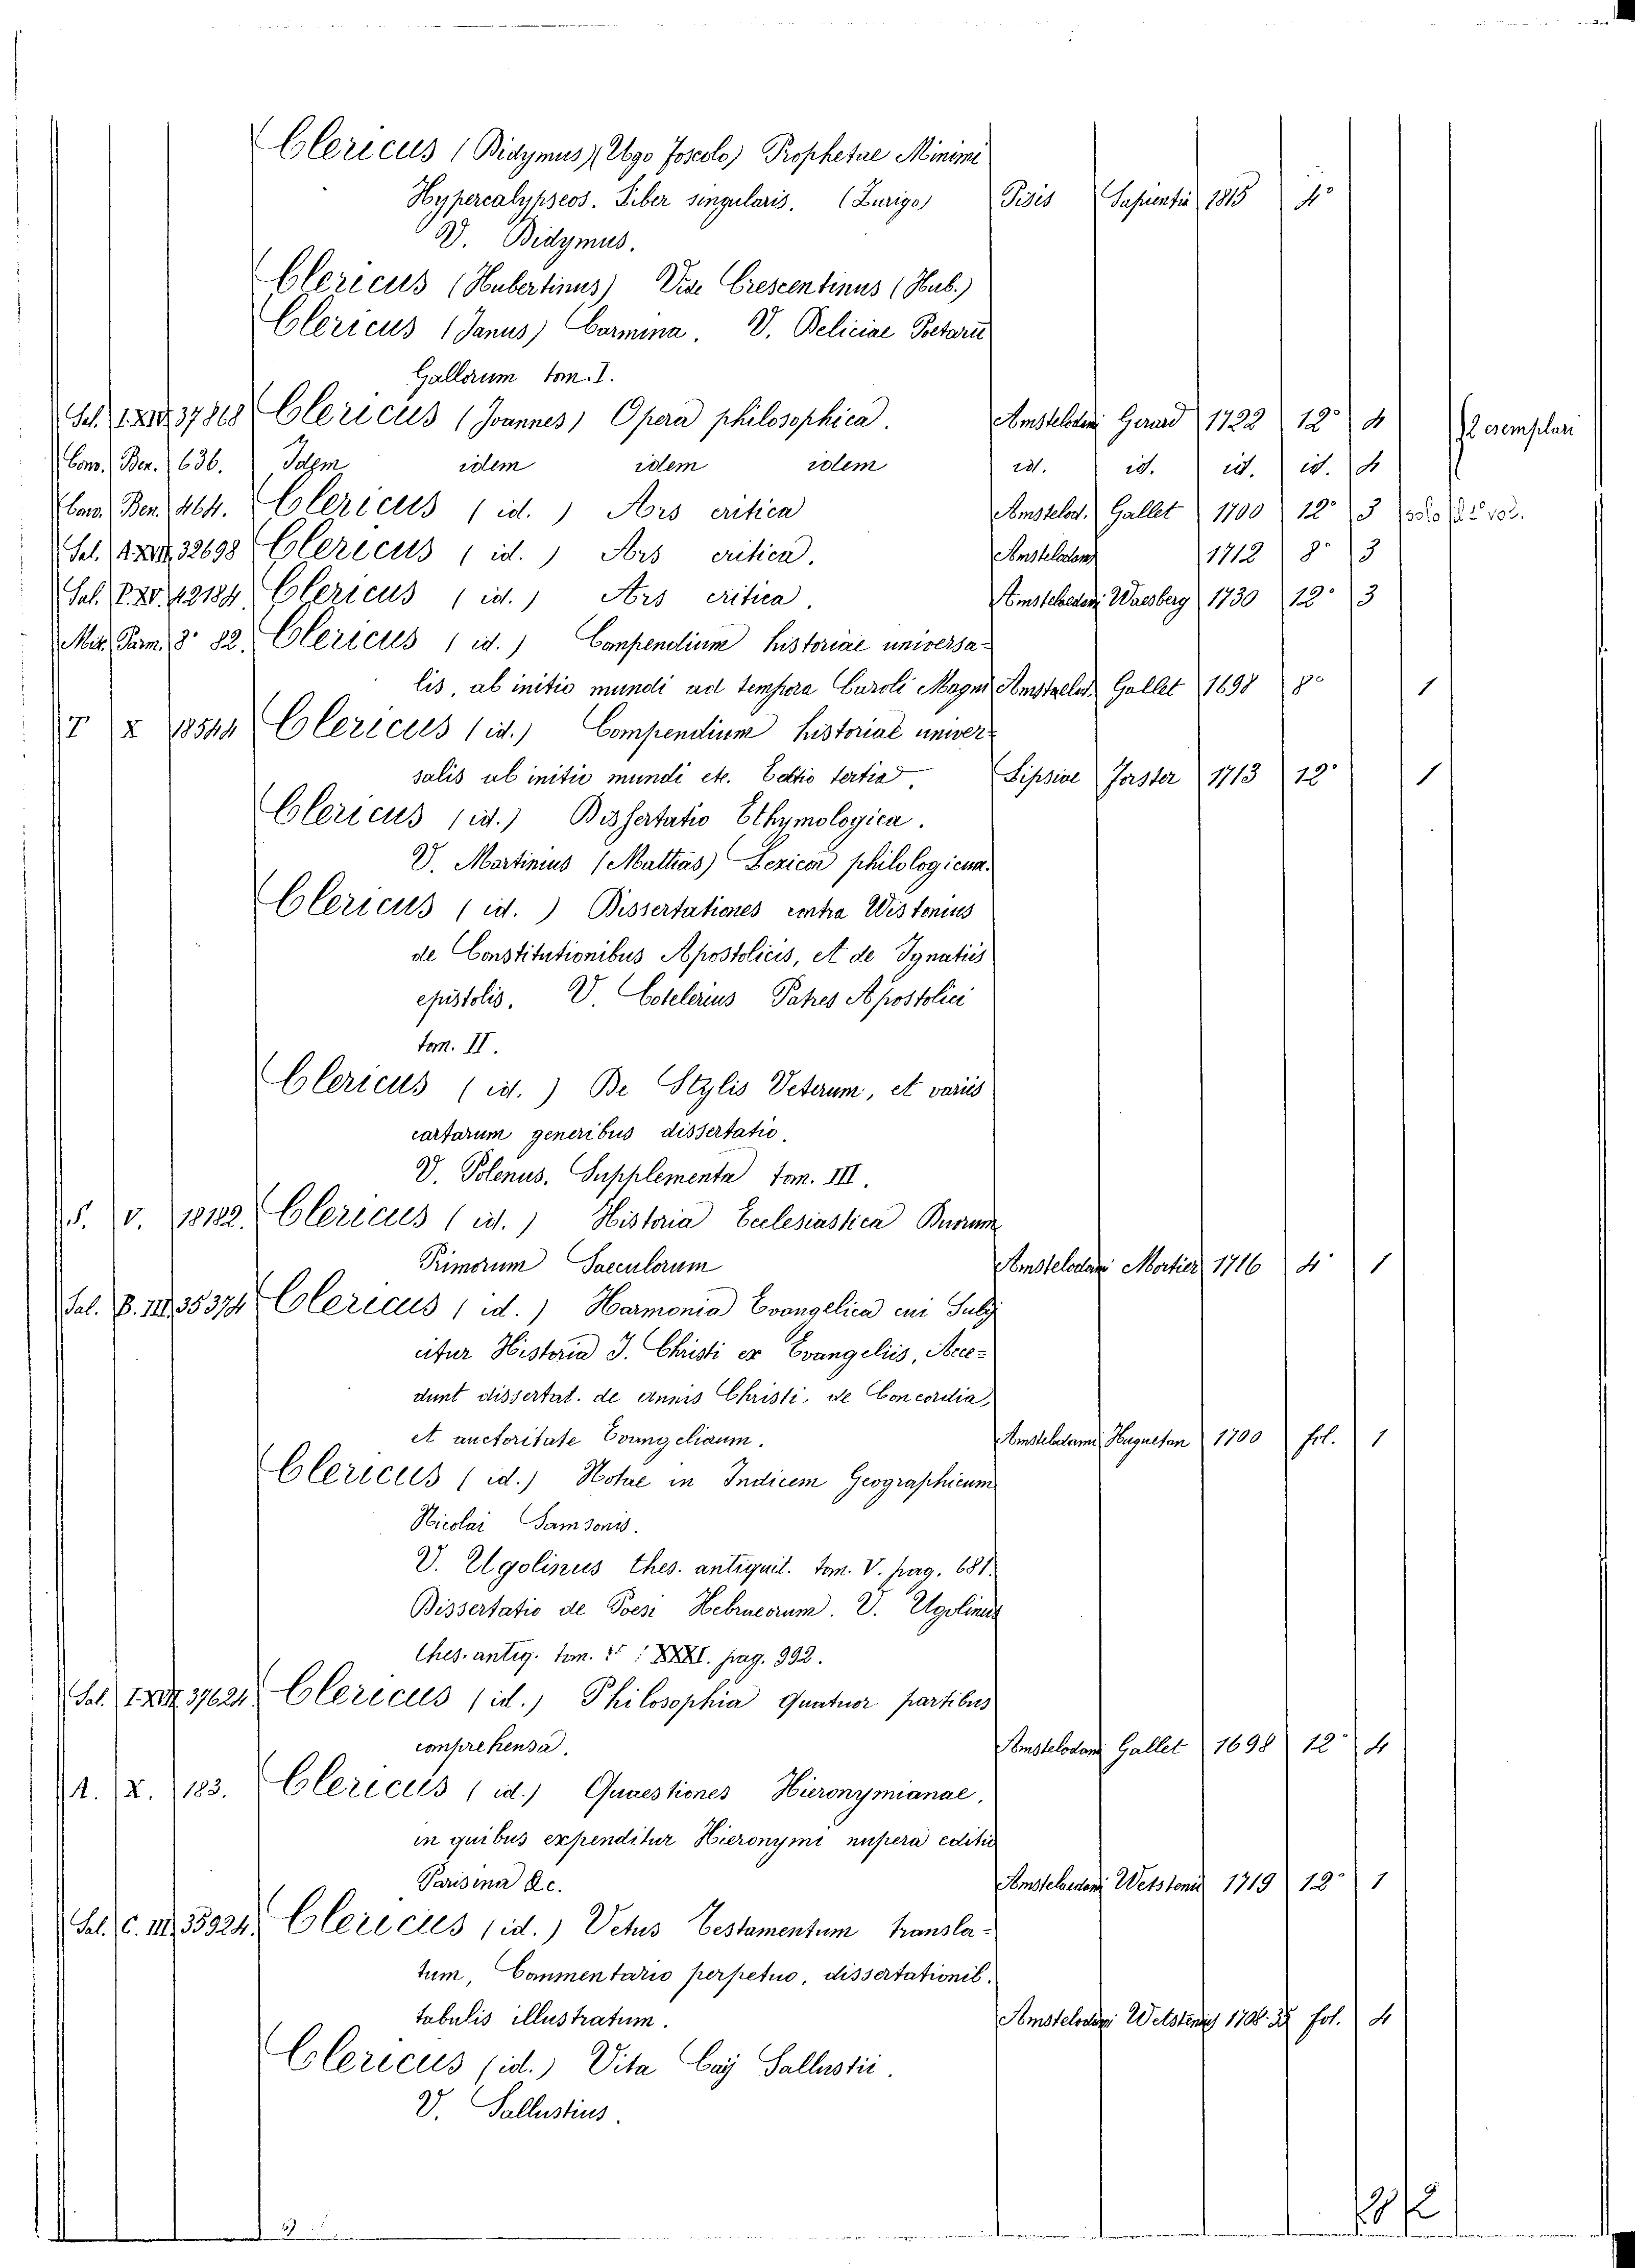 Clericus (Didymus) (Ugo Foscolo) Prophetae Minimi
Hypercalypseos. Liber singularis. (Zurigo) Pisis Sapientia 1815 4°
V. Didymus.
Clericus (Hubertinus) Vide Crescentinus (Hub.)
Clericus (Janus) Carmina. V. Deliciae Poetarū
Gallorum tom. I.
Sal. I. XIV. 37868 Clericus (Joannes) Opera philosophica. Amstelodami Gerard 1722 12° 4 2 esemplari
Com. Ben. 636. Idem idem idem idem id. id. id. id. 4
Com. Ben. 464. Clericus (id.) Ars critica Amstelod. Gallet 1700 12° 3 solo il 2 vol.
Sal. 32698 Clericus (id.) Ars critica. Amstelodami 1712 8° 3
Sal. P. XV. 42184 Clericus (id.) Ars critica. Amstelaedami Waesberg 1730 12° 3
Parm. 8° 82. Clericus (id.) Conpendium historiae universa-
lis, ab initio mundi ad tempora Caroli Magni Amstaelod. Gallet 1698 8° 1
T X 18544 Clericus (id.) Compendium historiae univer-
salis ab initio mundi etc. Editio tertia. Lipsiae Forster 1713 12° 1
Clericus (id.) Dissertatio Ethymologica.
V. Martinius (Mattias) Lexicon philologicum.
Clericus (id.) Dissertationes contra Wistonius
de Constitutionibus Apostolicis, et de Ignatiis
epistolis. V. Cotelerius Patres Apostolici
tom. II.
Clericus (id.) De Stylis Veterum, et variis
cartarum generibus dissertatio.
V. Polenus. Supplementa tom. III.
S. V. 18182. Clericus (id.) Historia Ecclesiastica Duorum
Primorum Saeculorum Amstelodami Mortier 1716 4° 1
Sal. B. III. 35374 Clericus (id.) Harmonia Evangelica cui Subji
citur Historia J. Christi ex Evangeliis, Acce-
dunt dissertat. de annis Christi, de Concordia,
et auctoritate Evangeliaum. Amstelodami Huguetan 1700 fol. 1
Clericus (id.) Notae in Indicem Geographicum
Nicolai Samsonis.
V. Ugolinus thes. antiquit. tom. V. pag. 681.
Dissertatio de Poesi Hebraeorum. V. Ugolinus
thes. antiq. tom. XXXI. pag. 992.
Sal. I. XIV. 37624 Clericus (id.) Philosophia quatuor partibus
comprehensa. Amstelodami Gallet 1698 12° 4
A. X. 183. Clericus (id.) Quaestiones Hieronymianae,
in quibus expenditur Hieronymi nupera editio
Parisina &c. Amstelaedami Wetstenii 1719 12° 1
Sal. C. III. 35924. Clericus (id.) Vetus testamentum transla-
tum, Commentario perpetuo, dissertationib.
tabulis illustratum. Amstelodami Wetstenii 1708. fol. 4
Clericus (id.) Vita Caij Sallustii.
V. Sallustius.